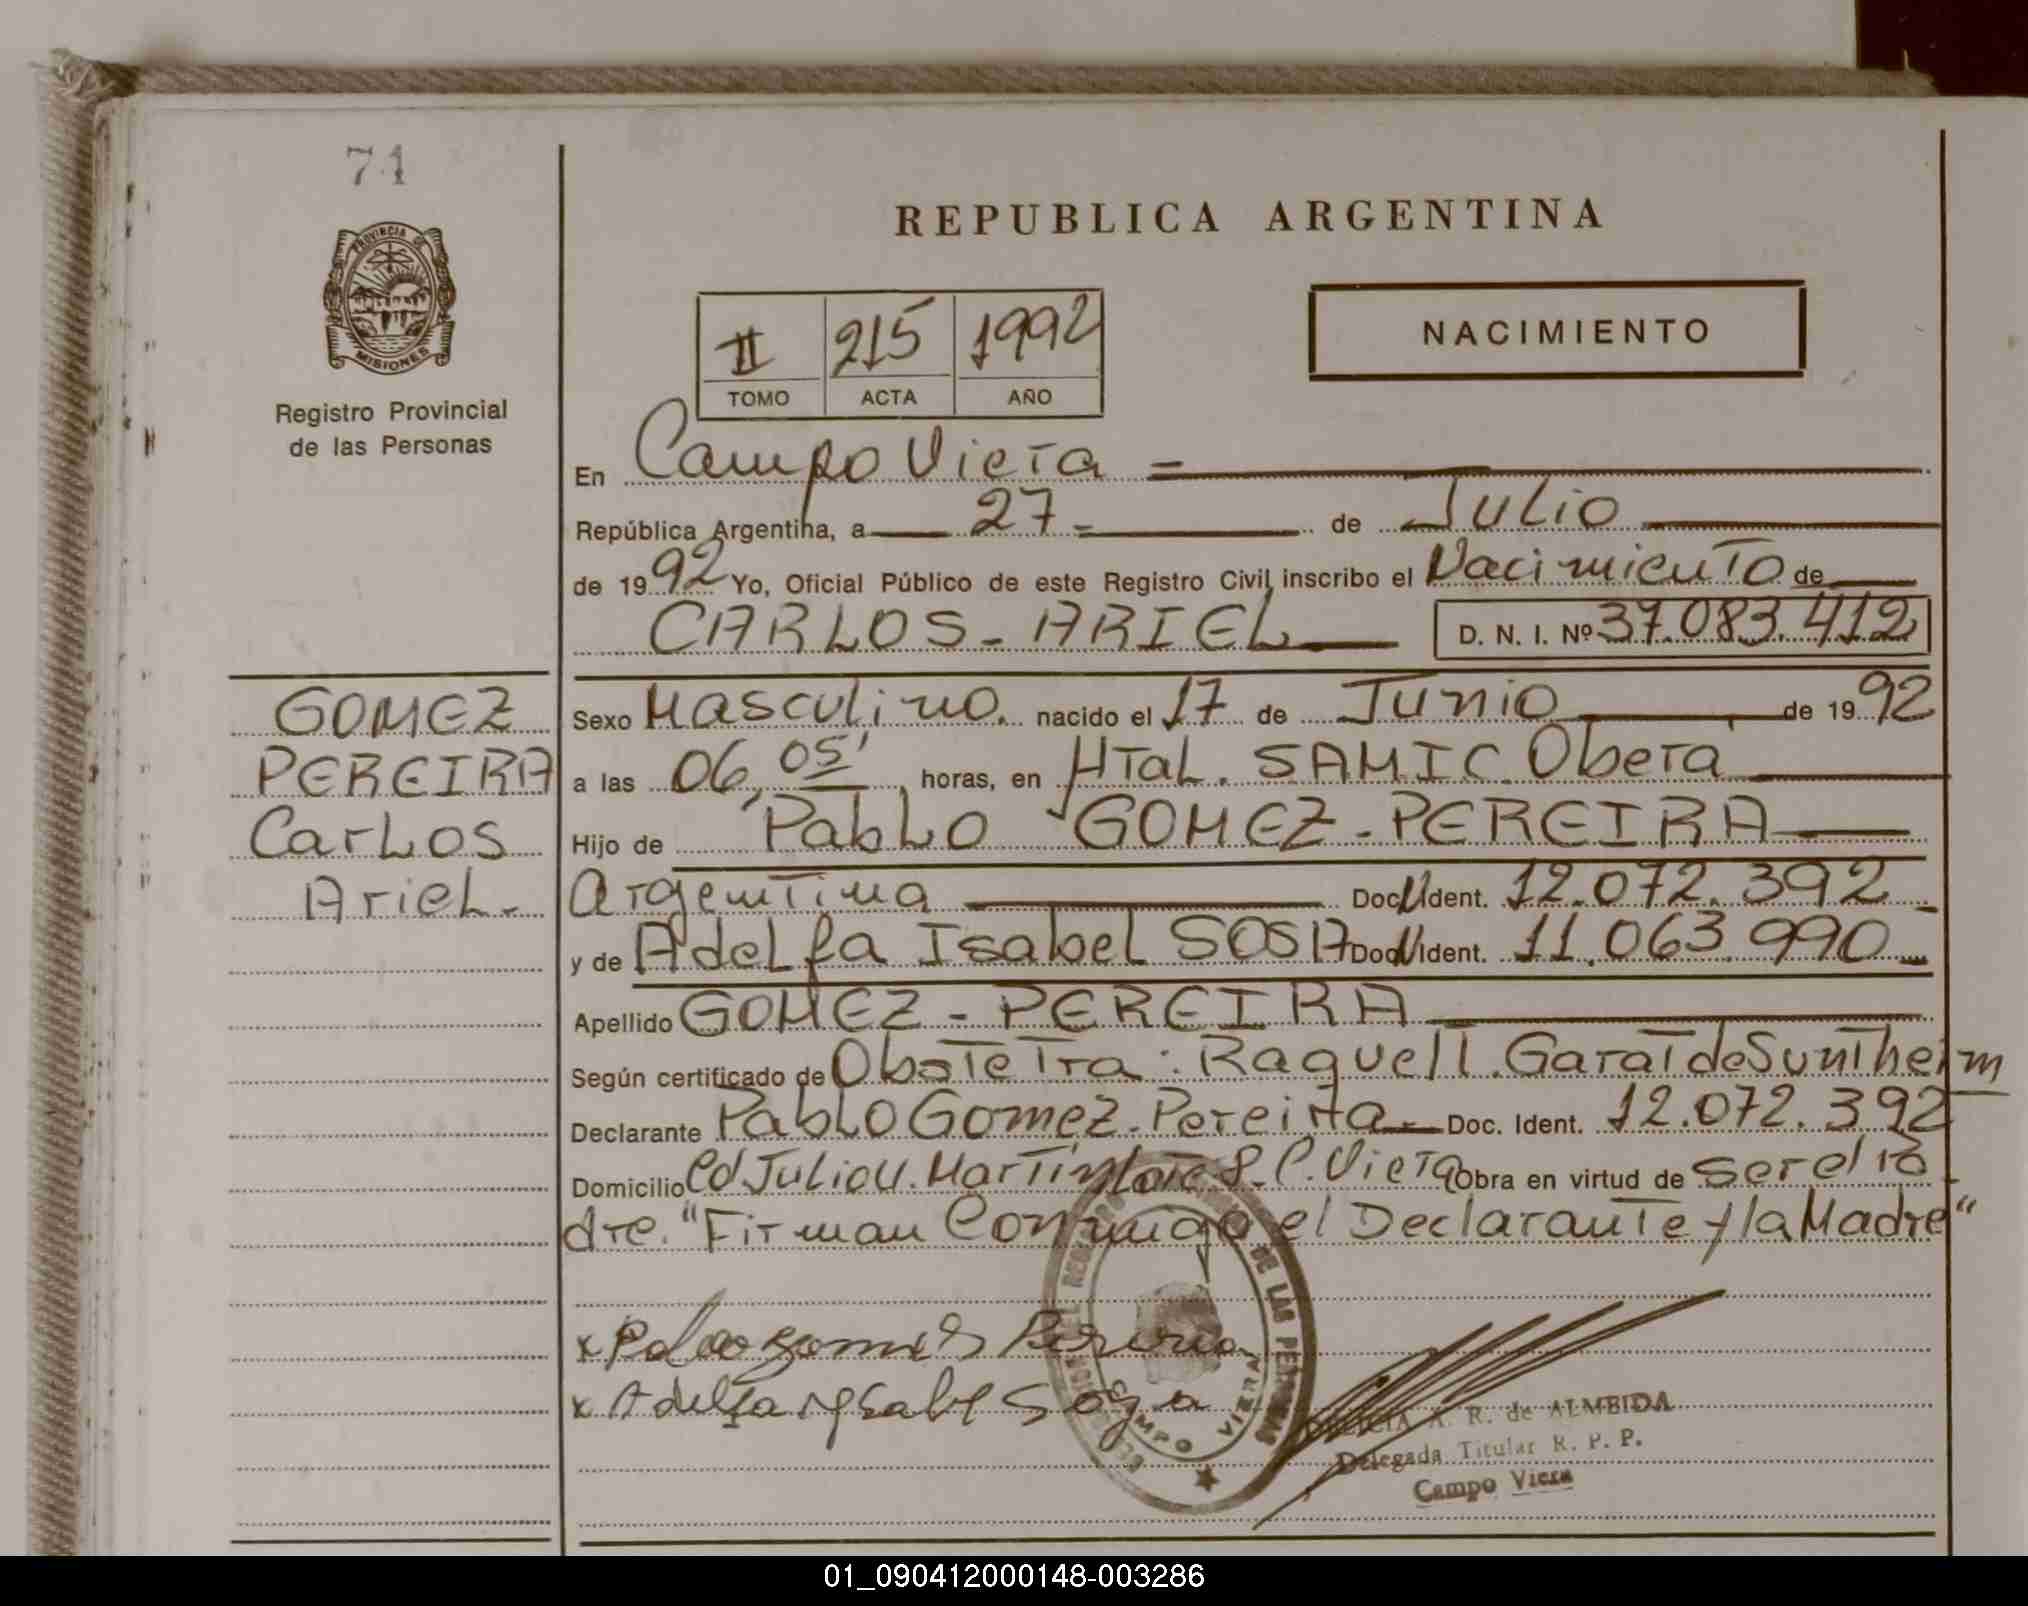 71
PROVINCIA DE
MISIONES
Registro Provincial
de las Personas
REPUBLICA ARGENTINA
II 215 1992
TOMO ACTA AÑO
NACIMIENTO
En Campo Viera =
República Argentina, a 27 = de Julio
de 1992 Yo, Oficial Público de este Registro Civil, inscribo el Nacimiento de
CARLOS - ARIEL D. N. I. Nº 37.083.412
GOMEZ
PEREIRA
Carlos
Ariel.
Sexo Masculino. nacido el 17 de Junio de 1992
a las 06,05' horas, en Htal. SAMIC Obera
Hijo de Pablo GOMEZ - PEREIRA
Argentina Doc. Ident. 12.072.392
y de Adelfa Isabel SOSA Doc. Ident. 11.063.990
Apellido GOMEZ - PEREIRA
Según certificado de Obstetra: Raquel T. Garat de Suntheim
Declarante Pablo Gomez - Pereira Doc. Ident. 12.072.392
Domicilio Cd Julio U. Martin Lote 8. C. Viera Obra en virtud de ser el Pa
dre. "Firman Conmigo el Declarante y la Madre"
x Pablo gomes Pereira
x Adelfa ysabel Sosa
DE LAS
CAMPO VIERA
A. R. de ALMEIDA
Delegada Titular R. P. P.
Campo Viera
01_090412000148-003286